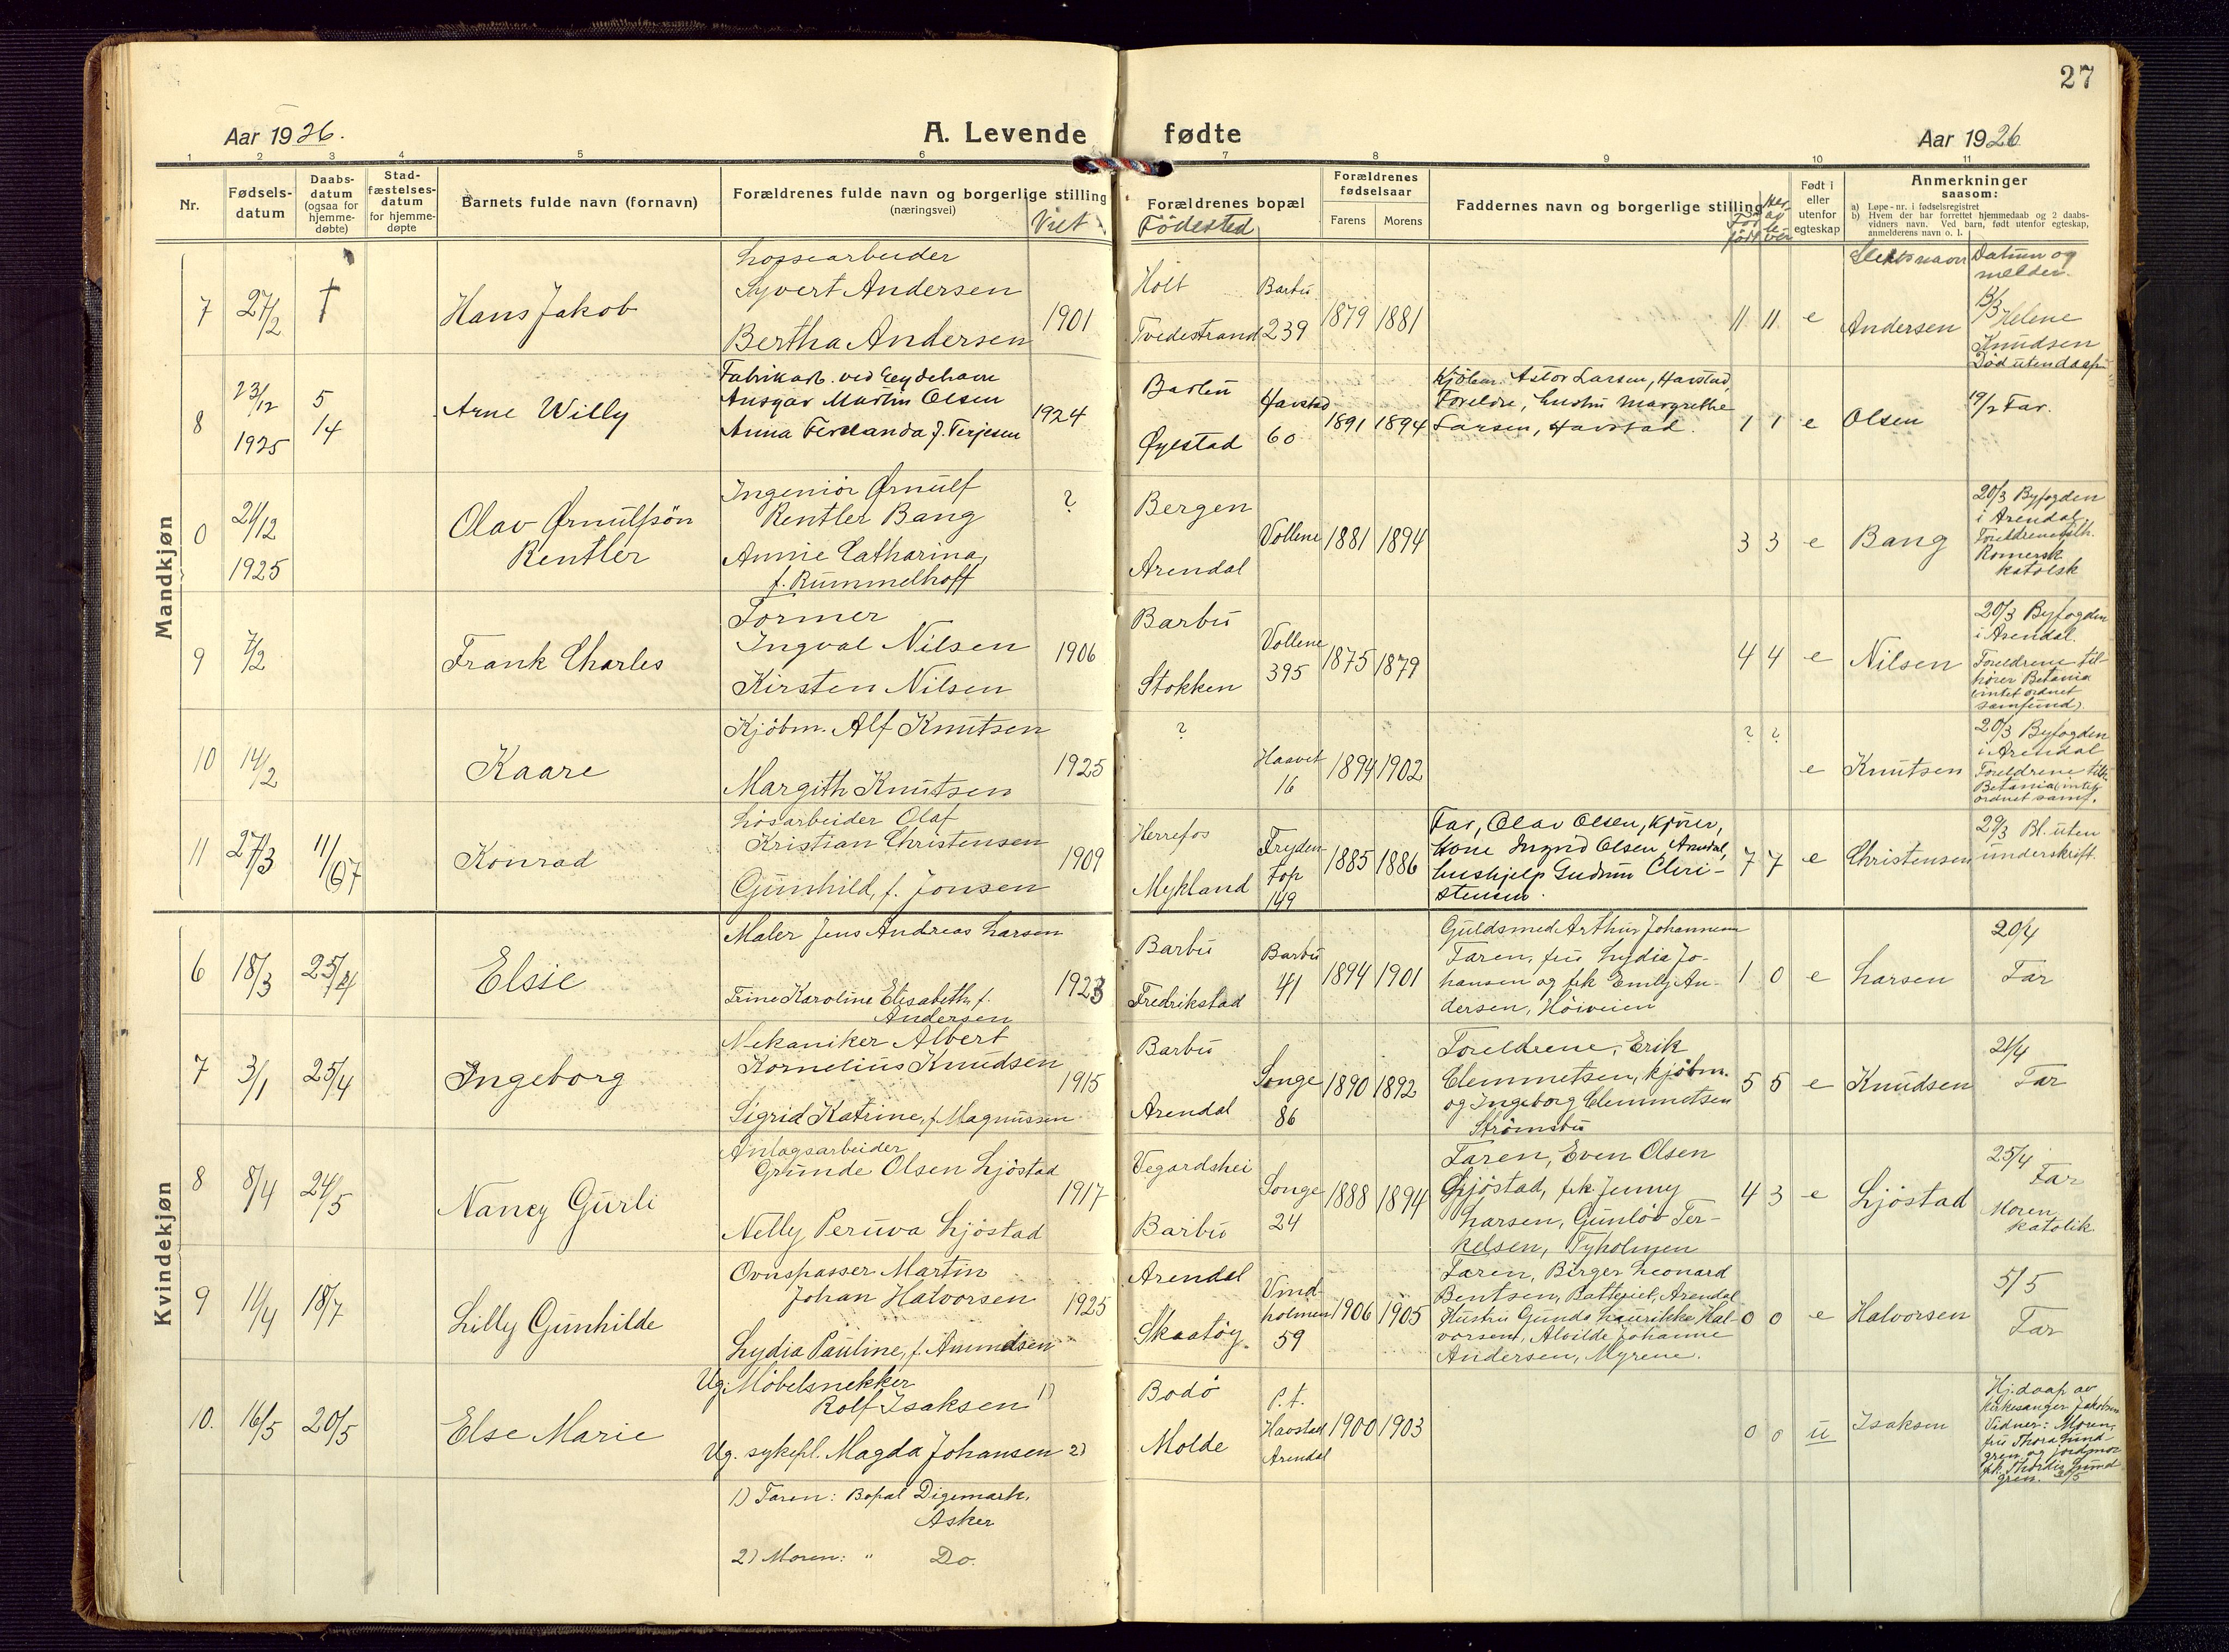 27
Aar 1926.
A. Levende fødte
Aar 1926
1 2 3 4 5 6 7 8 9 10 11
Nr.
Fødsels-
datum
Daabs-
datum
(ogsaa for
hjemme-
døbte)
Stad-
fæstelses-
datum
for hjemme-
døpte
Barnets fulde navn (fornavn)
Forældrenes fulde navn og borgerlige stilling
(næringsvei)
Viet
Forældrenes bopæl
Födested
Forældrenes
fødselsaar
Farens Morens
Faddernes navn og borgerlige stilling
Født i
eller
utenfor
egteskap
Anmerkninger
saasom:
a) Løpe-nr. i fødselsregistret
b) Hvem der har forrettet hjemmedaab og 2 daabs-
vidners navn. Ved barn, født utenfor egteskap,
anmelderens navn o. l.
Datum og
melder.
Mandkjøn
7
27/2
†
Hans Jakob
Syvert Andersen
Bertha Andersen
1901
Holt
Tvedestrand
Barbu
239
1879 1881
11 11 e
Andersen
13/3 Helene
Knudsen
8
23/12
1925
5
14
Arne Willy
Fabrikarb. ved Eydehavn
Ansgar Martin Olsen
Anna Fernanda f. Terjesen
1924
Barbu
Øyestad
Havstad
60
1891 1894
Kjöbm. Astor Larsen, Havstad,
Foreldre, hustru Margrethe
Larsen, Havstad.
1 1 e
Olsen
19/2 Far.
0
21/12
1925
Olav Ørnulfsön
Rentler
Ingeniör Ørnulf
Rentler Bang
Annie Catharina,
f. Rummelhoff
?
Bergen
Arendal
Vollene
1881 1894
3 3 e
Bang
20/3 Byfogden
i Arendal
Foreldrene tilh.
Romersk
katolsk
9
7/2
Frank Charles
Former
Ingval Nilsen
Kirsten Nilsen
1906
Barbu
Stokken
Vollene
395
1875 1879
4 4 e
Nilsen
20/3 Byfogden
i Arendal.
Foreldrene til-
hører Betania
(intet ordnet
samfund).
10
14/2
Kaare
Kjöbm. Alf Knutsen
Margith Knutsen
1925
?
Haavet
16
1894 1902
? ?
e
Knutsen
20/3 Byfogden
i Arendal
Foreldrene tilh.
Betania (intet
ordnet samf.
11
27/3
11/7
Konrad
Løsarbeider Olaf
Kristian Christensen
Gunhild, f. Jonsen
1909
Herrefos
Mykland
Fryden-
top
149
1885 1886
Far, Olav Olsen, kjörer,
kone Ingrid Olsen, Arendal,
hushjelp Gudrun Chri-
stensen.
7 7 e
Christensen
29/3 Bl. uten
underskrift.
Kvindekjøn
6
18/3
25/4
Elsie
Maler Jens Andreas Larsen
Trine Karoline Elisabeth, f.
Andersen
1923
Barbu
Fredrikstad
Barbu
41
1894 1901
Guldsmed Arthur Johannesen
Faren, fru Lydia Jo-
hansen og frk Emily An-
dersen, Höiveien
1 0 e
Larsen
20/4
Far
7
3/1
25/4
Ingeborg
Mekaniker Albert
Kornelius Knudsen
Sigrid Katrine, f Magnussen
1915
Barbu
Arendal
Songe
86
1890 1892
Foreldrene, Erik
Clemmetsen, kjöbm.
og Ingeborg Clemmetsen
Strømsbu
5 5 e
Knudsen
21/4
Far
8
8/4
24/5
Nancy Gurli
Anlagsarbeider
Grunde Olsen Ljöstad
Nelly Peruva Ljöstad
1917
Vegardshei
Barbu
Songe
24
1888 1894
Faren, Even Olsen
Ljöstad, frk Jenny
Larsen, Gunlöv Ter-
kelsen, Tyholmen
4 3 e
Ljöstad
25/4
Far
Moren
katolik.
9
11/4
18/7
Lilly Gunhilde
Ovnspasser Martin
Johan Halvorsen
Lydia Pauline, f. Amundsen
1925
Arendal
Skaatöy.
Vind-
holmen
59
1906 1905
Faren, Birger Leonard
Bentsen, Batteriet, Arendal
Hustru Gunda Laurikke Hal-
vorsen, Alvilde Johanne
Andersen, Myrene.
0 0 e
Halvorsen
5/5
Far
10.
16/5
20/5
Else Marie
Ug. Möbelsnekker
Rolf Isaksen 1)
Ug. sykepl. Magda Johansen 2)
1) Faren: Bopal Digemark,
Asker
2) Moren: " Do.
Bodö
Molde
p.t.
Havstad
Arendal
1900 1903
0 0 u
Isaksen
Hj. daap av
kirkesanger Jakobsen
Vidner: Moren,
fru Thora Lund
gren og jordmor
frk. Thordis Lund
gren.